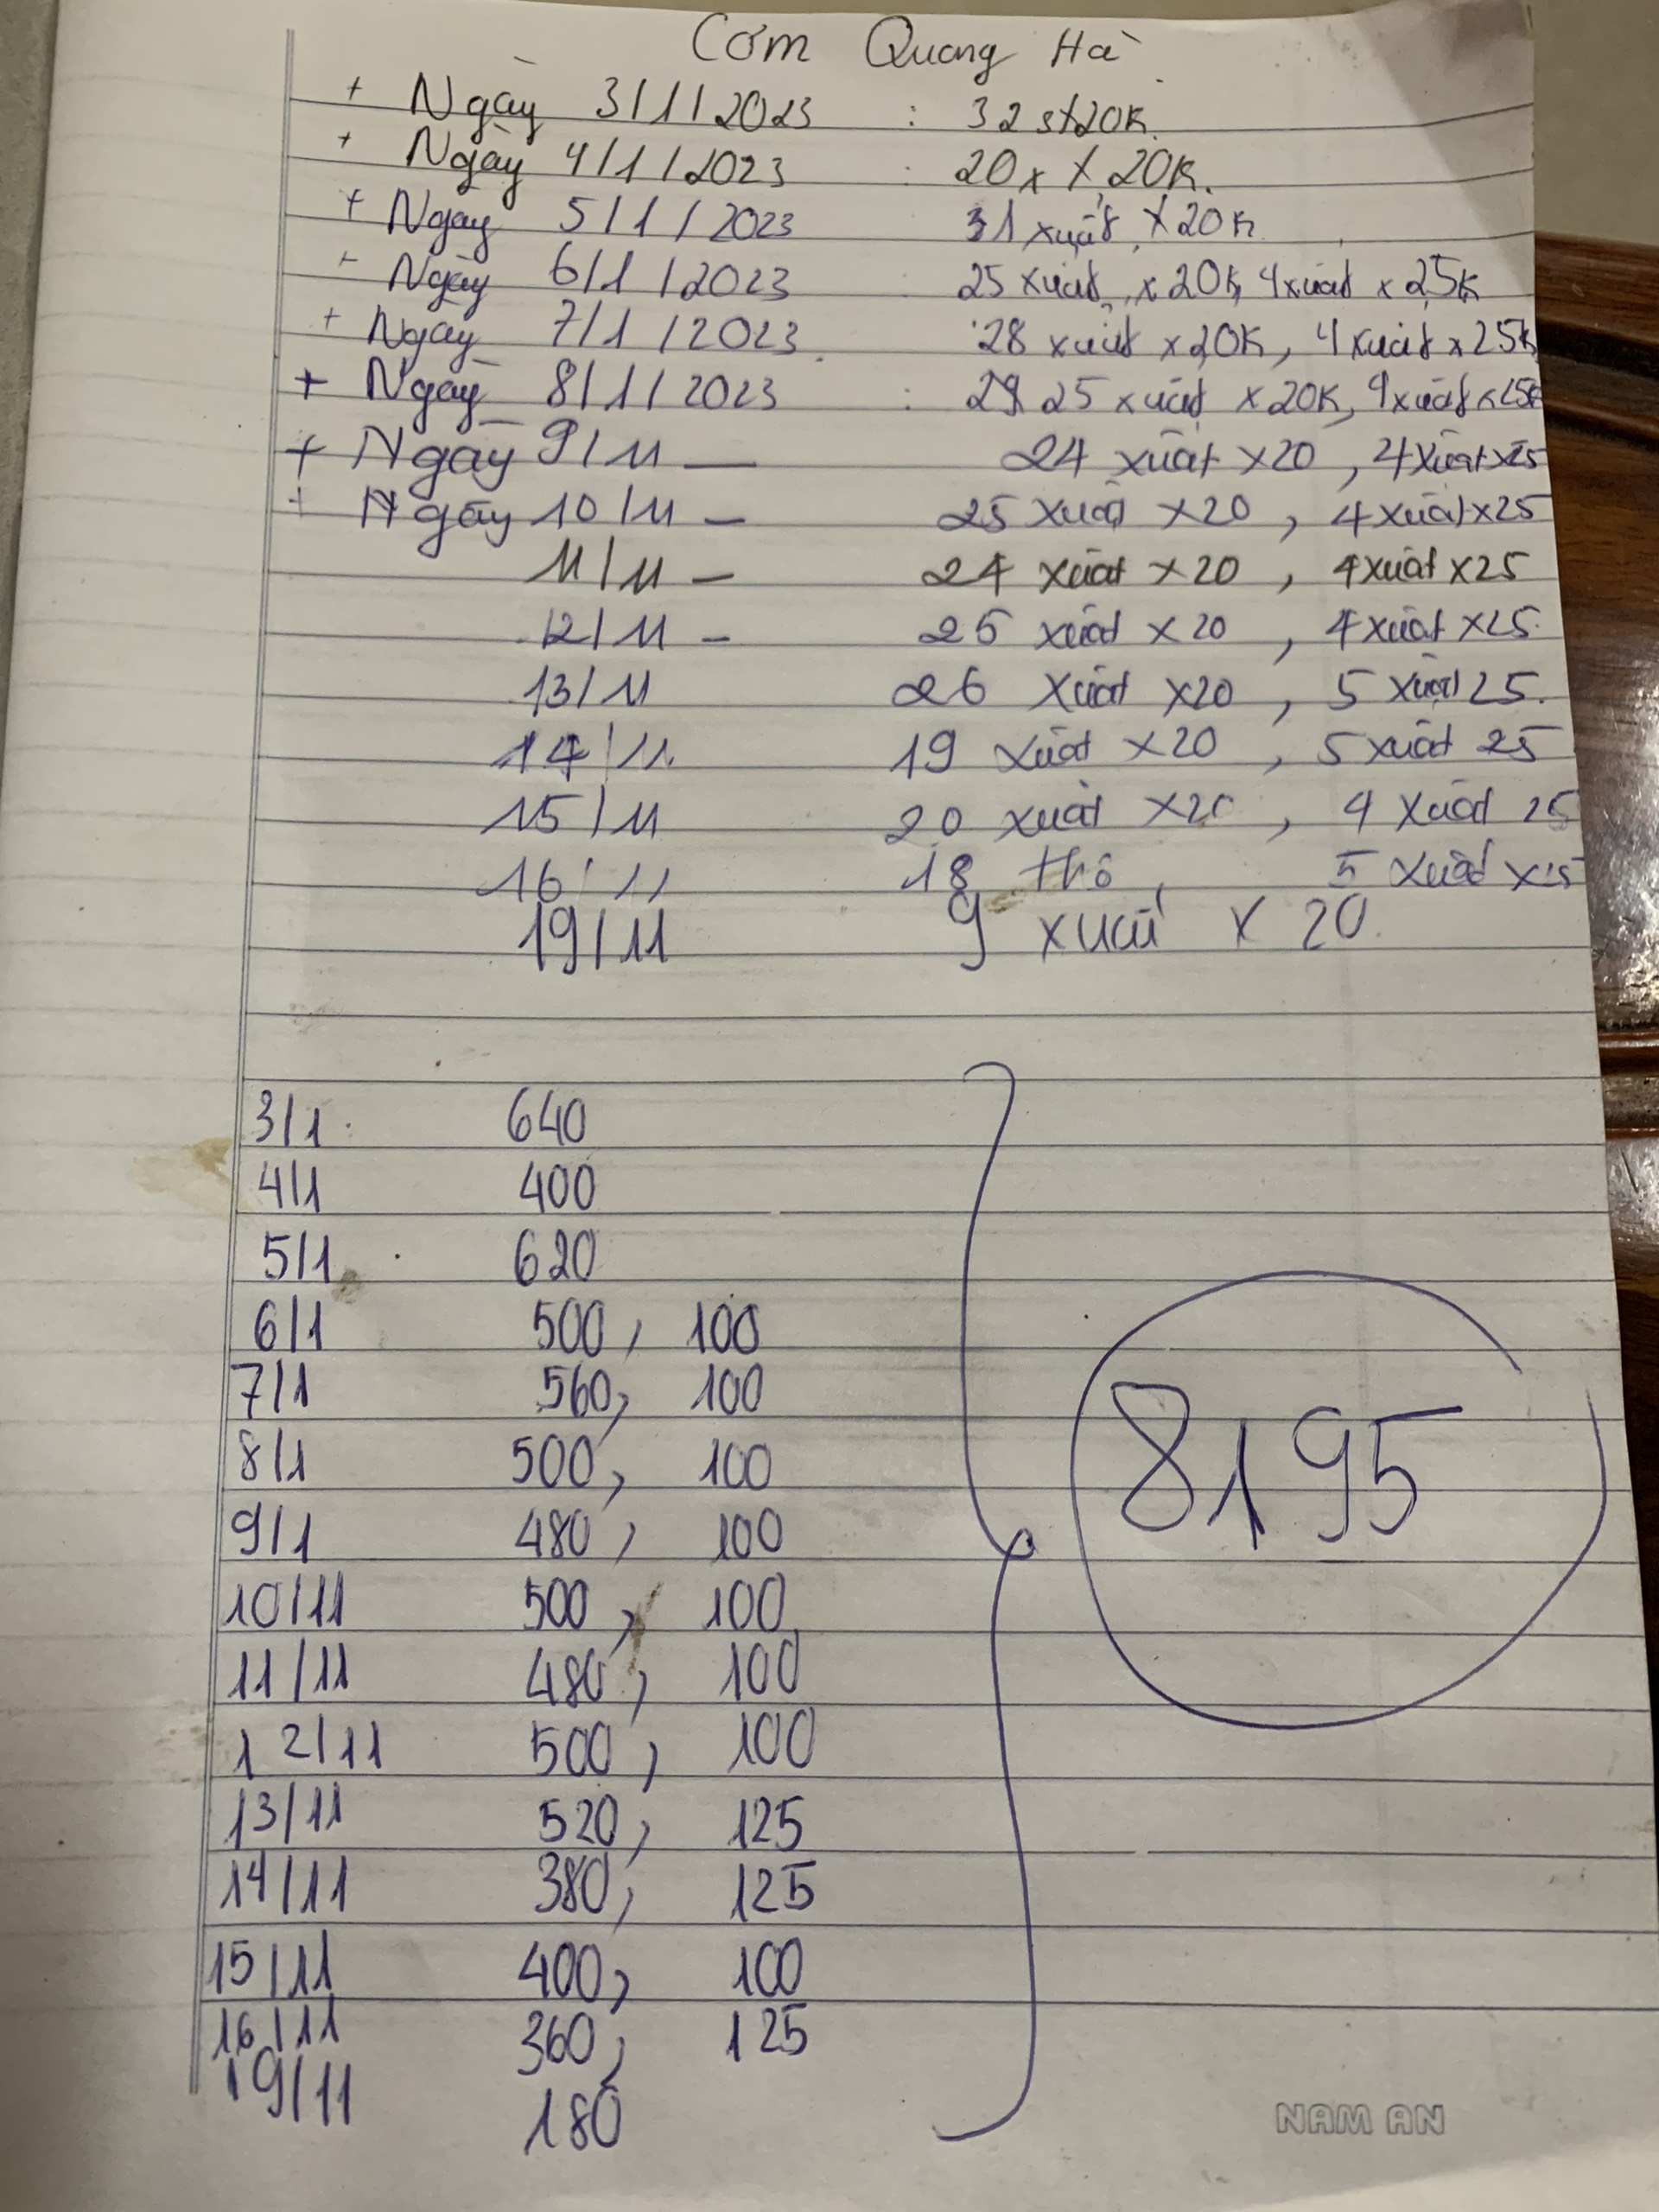 Cơm Quang Hà
+ Ngày 3/1/2023 : 32 s x 20K.
+ Ngày 4/1/2023 : 20 x X 20K.
+ Ngày 5/1/2023 31 xuất x 20K
- Ngày 6/1/2023 : 25 xuất x 20K, 4 xuất x 25K
+ Ngày 7/1/2023 : 28 xuất x 20K, 4 xuất x 25K
+ Ngày 8/1/2023 : 25 xuất x 20K, 4 xuất x 25K
+ Ngày 9/11 — 24 xuất x 20, 4 xuất x 25
+ Ngày 10/11 — 25 xuất x 20, 4 xuất x 25
11/11 — 24 xuất x 20, 4 xuất x 25
12/11 — 25 xuất x 20, 4 xuất x 25.
13/11 26 xuất x 20, 5 xuất 25.
14/11. 19 xuất x 20, 5 xuất 25
15/11 20 xuất x 20, 4 xuất 25
16/11 18 thô, 5 xuất x 25
19/11 9 xuất x 20.
3/1. 640
4/1 400
5/1 620
6/1 500, 100
7/1 560, 100
8/1 500, 100
9/1 480, 100
10/11 500, 100
11/11 480, 100
12/11 500, 100
13/11 520, 125
14/11 380, 125
15/11 400, 100
16/11 360, 125
19/11 180
8195
NAM AN